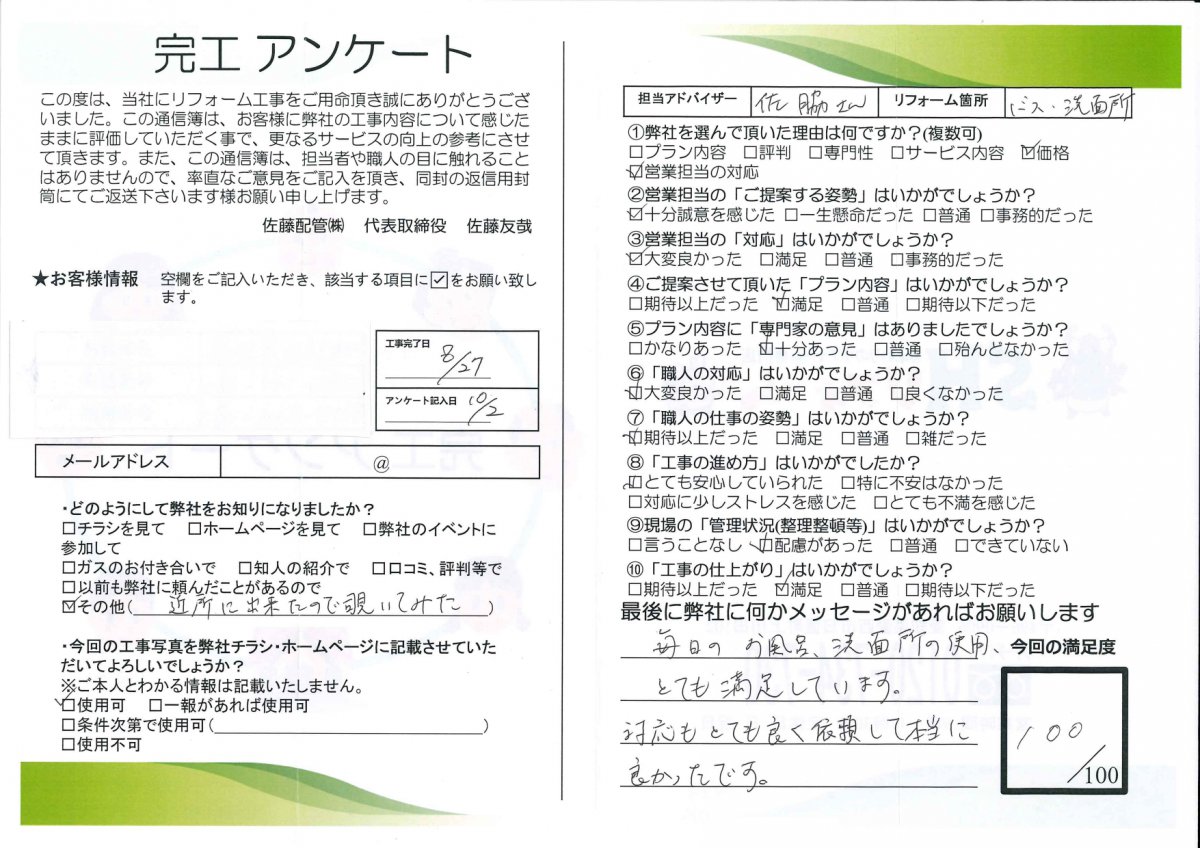 完工 アンケート
この度は、当社にリフォーム工事をご用命頂き誠にありがとうござ
いました。この通信簿は、お客様に弊社の工事内容について感じた
ままに評価していただく事で、更なるサービスの向上の参考にさせ
て頂きます。また、この通信簿は、担当者や職人の目に触れること
はありませんので、率直なご意見をご記入を頂き、同封の返信用封
筒にてご返送下さいます様お願い申し上げます。
佐藤配管㈱ 代表取締役 佐藤友哉
★お客様情報 空欄をご記入いただき、該当する項目に☑をお願い致し
ます。
工事完了日
8/27
アンケート記入日 10/2
メールアドレス @
・どのようにして弊社をお知りになりましたか？
□チラシを見て □ホームページを見て □弊社のイベントに
参加して
□ガスのお付き合いで □知人の紹介で □口コミ、評判等で
□以前も弊社に頼んだことがあるので
☑その他( 近所に出来たので覗いてみた )
・今回の工事写真を弊社チラシ・ホームページに記載させていた
だいてよろしいでしょうか？
※ご本人とわかる情報は記載いたしません。
☑使用可 □一報があれば使用可
□条件次第で使用可( )
□使用不可
担当アドバイザー 佐脇さん リフォーム箇所 バス・洗面所
①弊社を選んで頂いた理由は何ですか？(複数可)
□プラン内容 □評判 □専門性 □サービス内容 ☑価格
☑営業担当の対応
②営業担当の「ご提案する姿勢」はいかがでしょうか？
☑十分誠意を感じた □一生懸命だった □普通 □事務的だった
③営業担当の「対応」はいかがでしょうか？
☑大変良かった □満足 □普通 □事務的だった
④ご提案させて頂いた「プラン内容」はいかがでしょうか？
□期待以上だった ☑満足 □普通 □期待以下だった
⑤プラン内容に「専門家の意見」はありましたでしょうか？
□かなりあった ☑十分あった □普通 □殆んどなかった
⑥「職人の対応」はいかがでしょうか？
☑大変良かった □満足 □普通 □良くなかった
⑦「職人の仕事の姿勢」はいかがでしょうか？
☑期待以上だった □満足 □普通 □雑だった
⑧「工事の進め方」はいかがでしたか？
☑とても安心していられた □特に不安はなかった
□対応に少しストレスを感じた □とても不満を感じた
⑨現場の「管理状況(整理整頓等)」はいかがでしょうか？
□言うことなし ☑配慮があった □普通 □できていない
⑩「工事の仕上がり」はいかがでしょうか？
□期待以上だった ☑満足 □普通 □期待以下だった
最後に弊社に何かメッセージがあればお願いします
毎日の お風呂、洗面所の使用、
とても満足しています。
対応もとても良く依頼して本当に
良かったです。
今回の満足度
100
/100